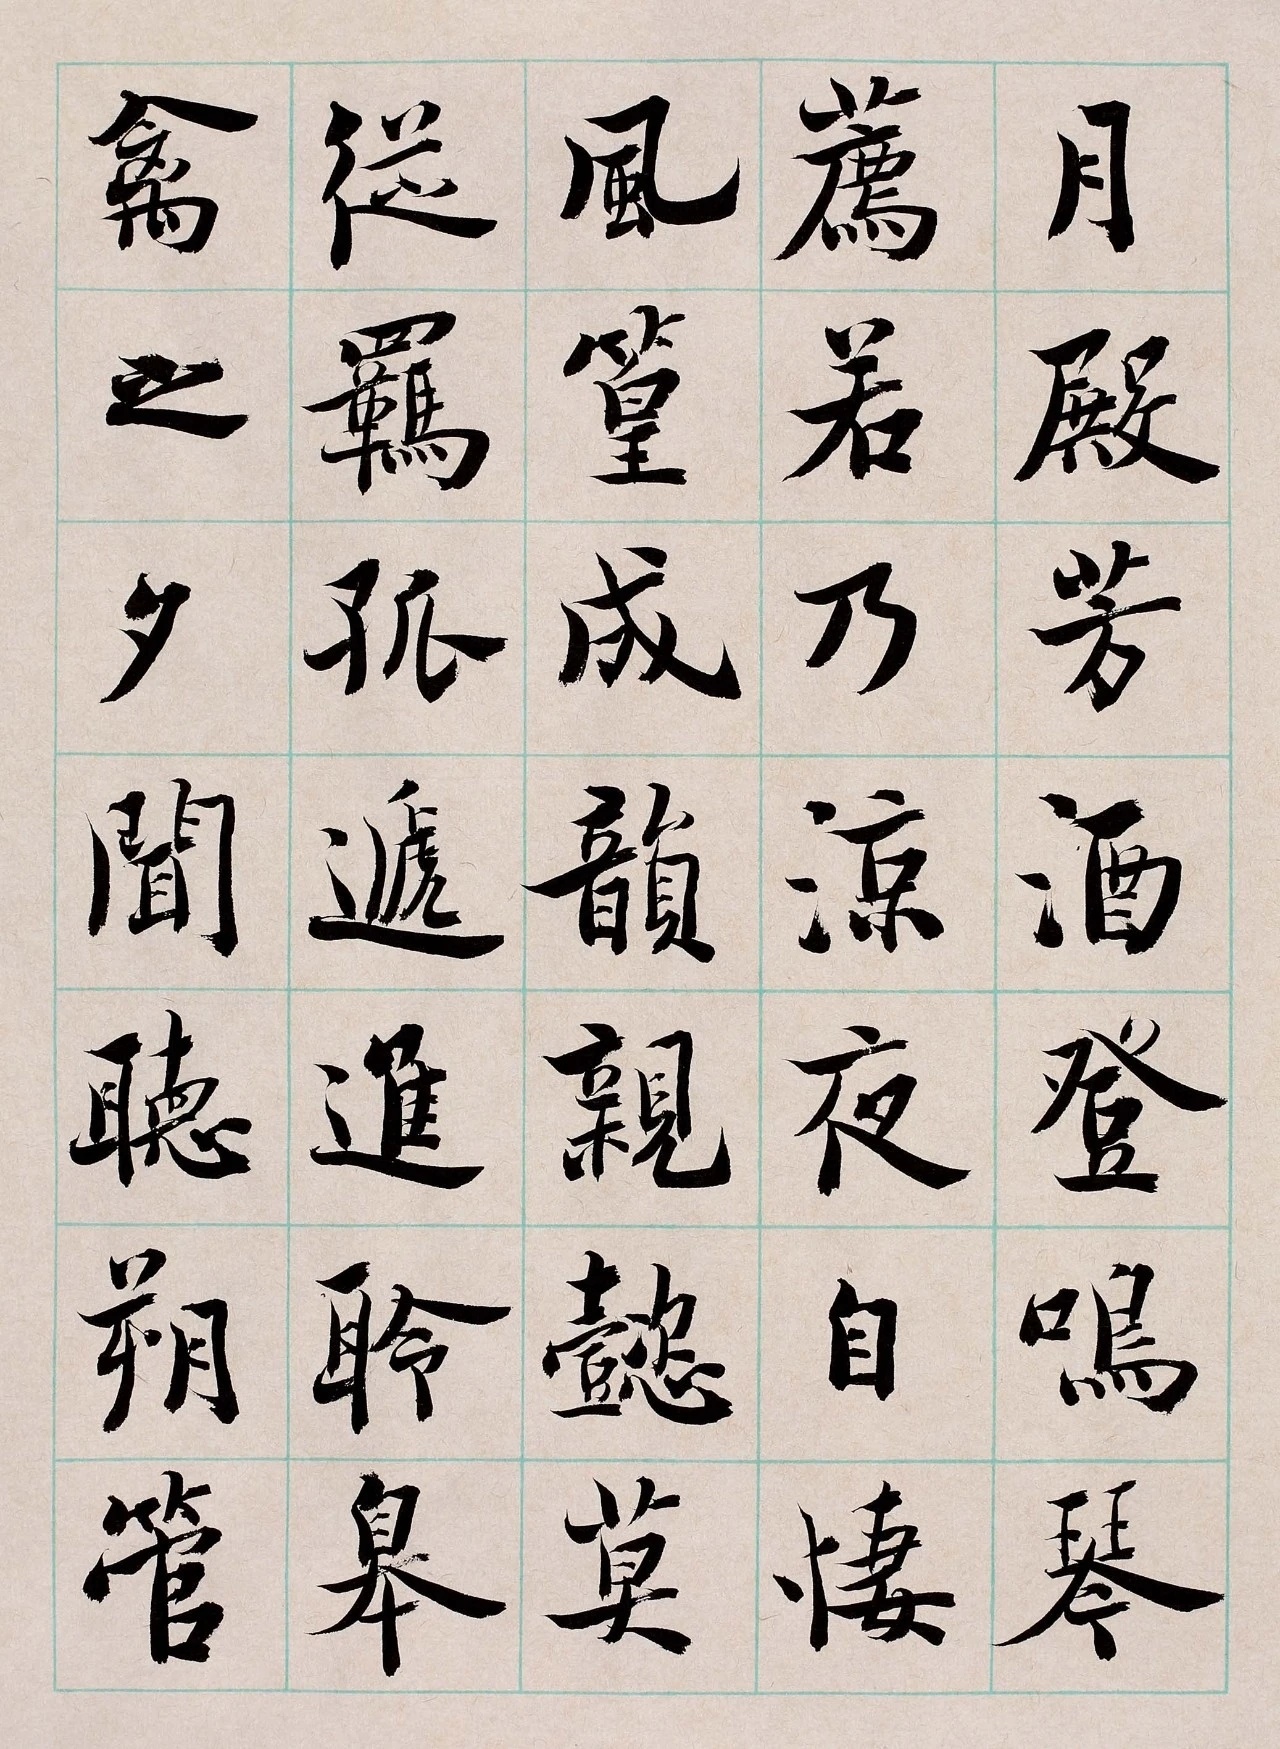 月殿芳酒登鳴琴
薦若乃涼夜自悽
風篁成韻親懿莫
從羈孤遞進聆皋
禽之夕聞聽朔管